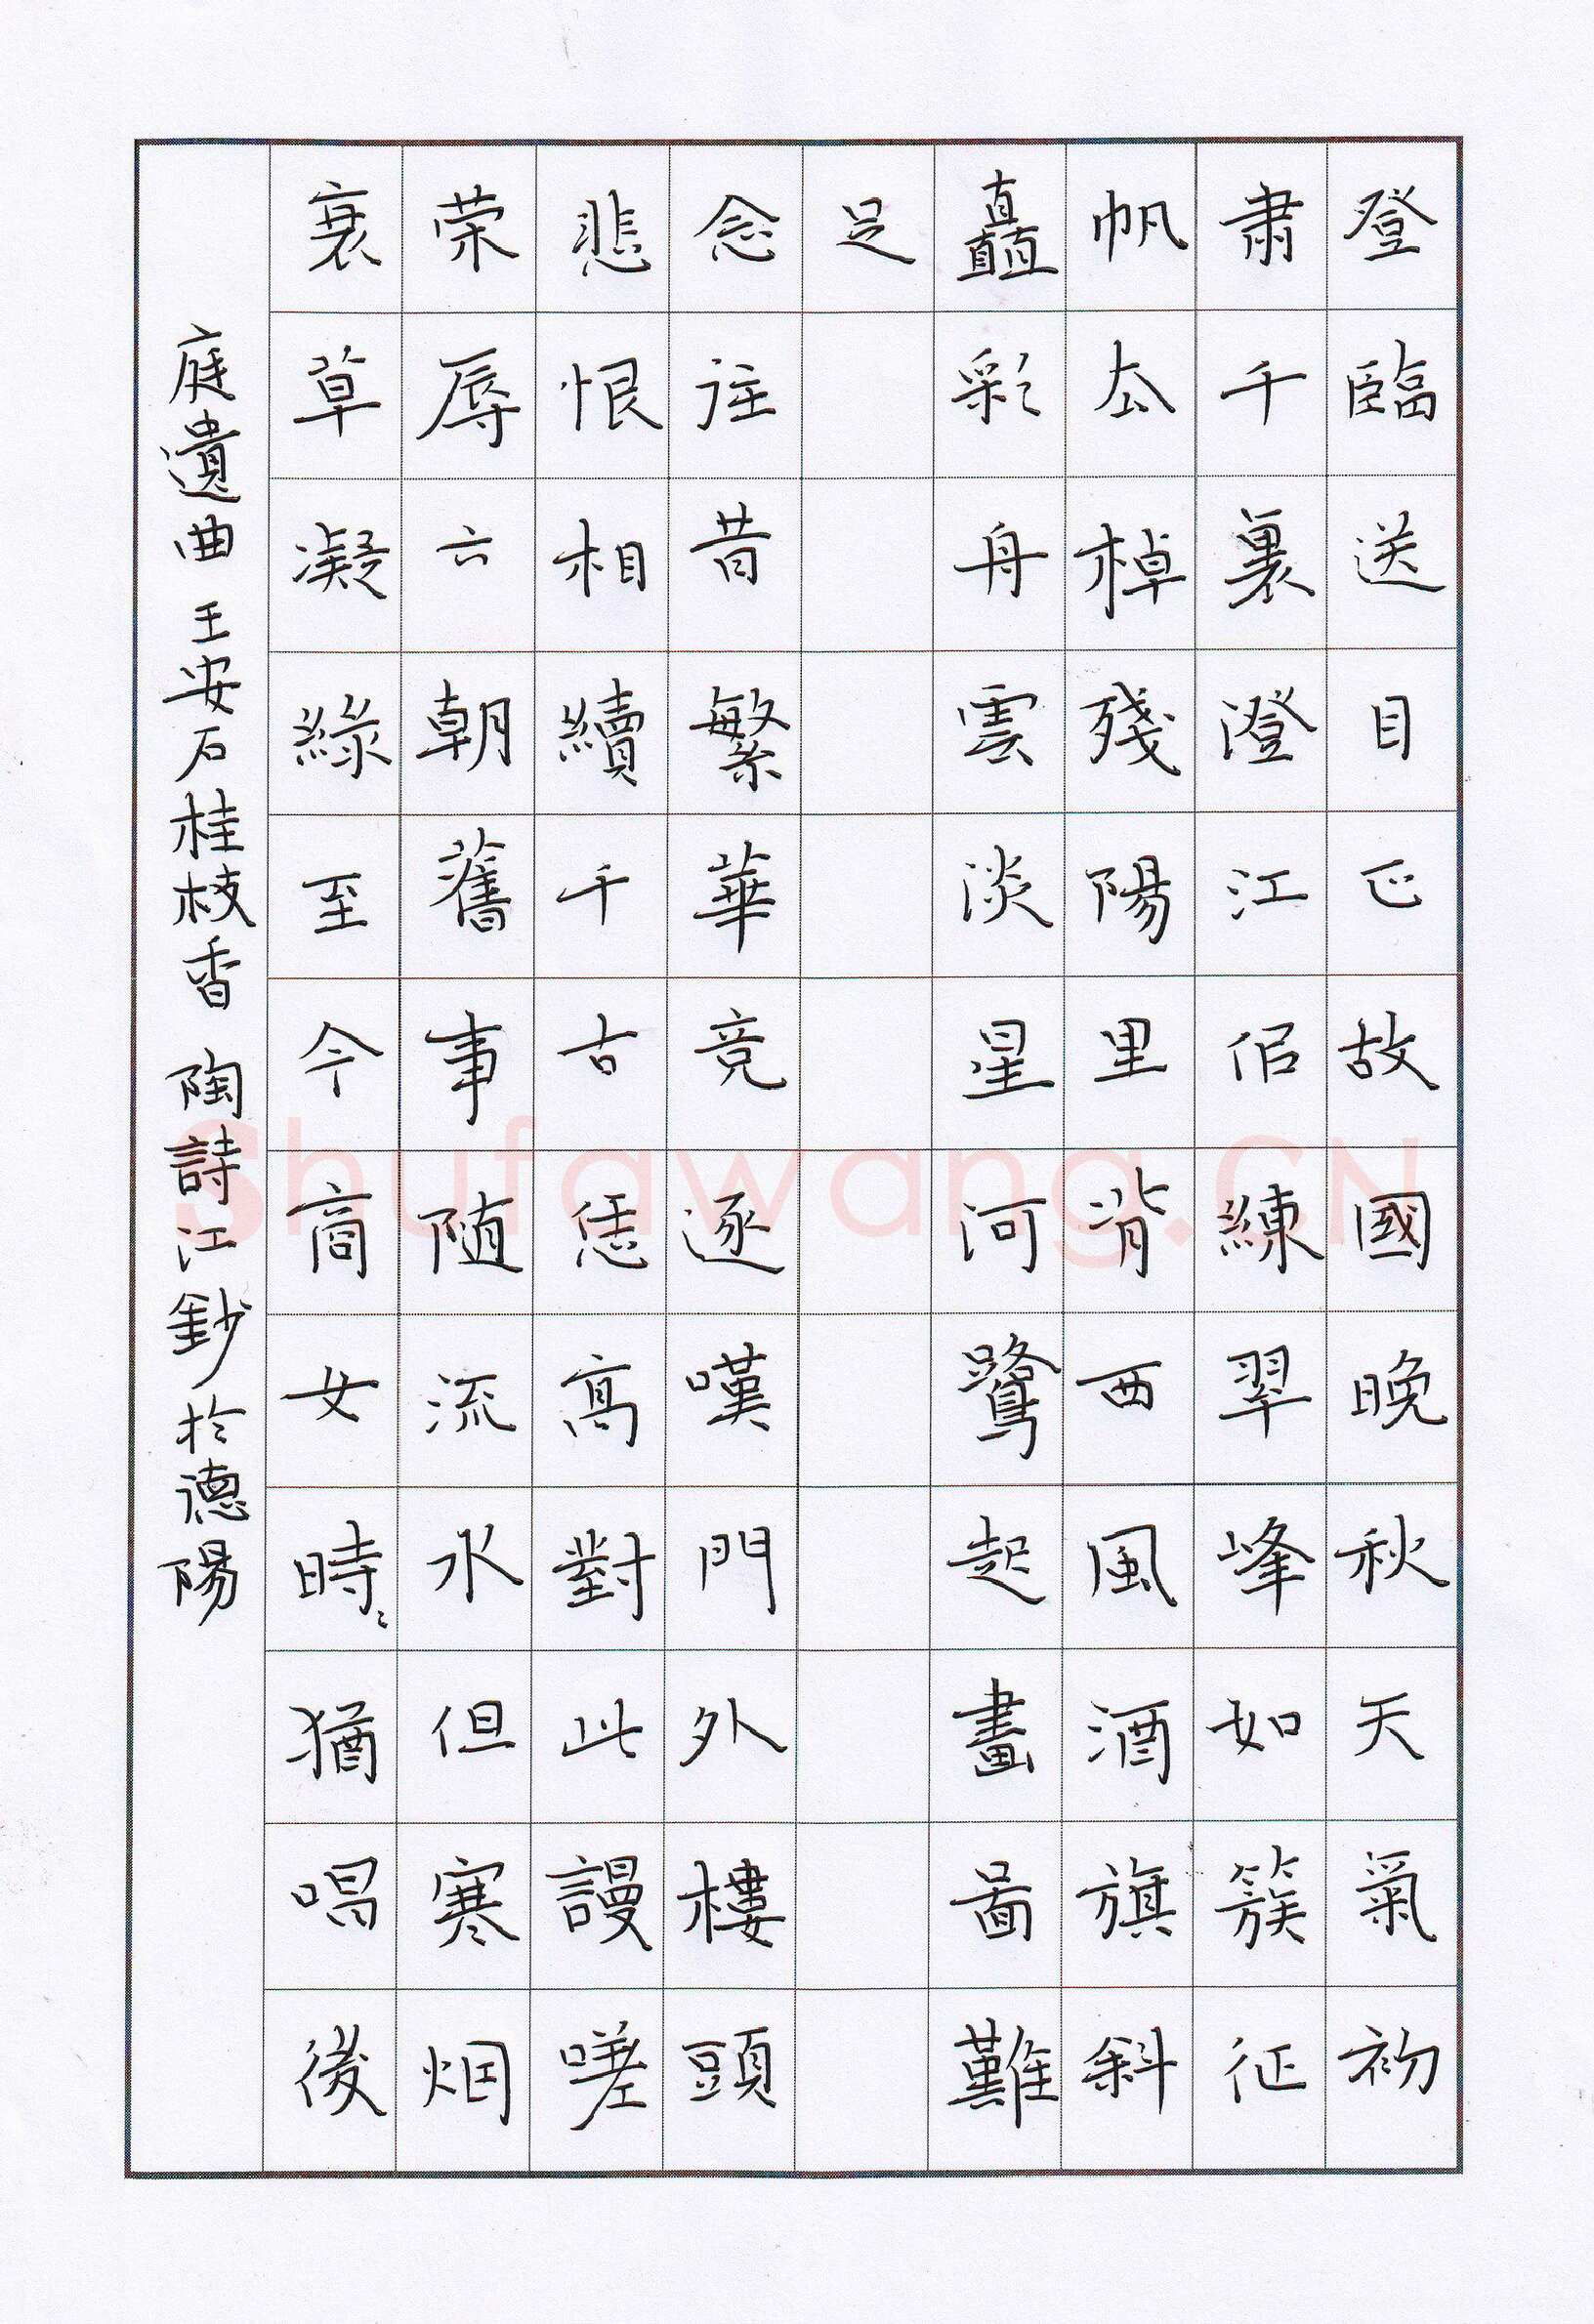 登臨送目正故國晚秋天氣初
肅千裏澄江佀練翠峰如簇征
帆去棹殘陽里背西風酒旗斜
矗彩舟雲淡星河鷺起畫啚難
足
念往昔繁華竞逐嘆門外樓頭
悲恨相續千古恁高對此謾嗟
荣辱六朝舊事随流水但寒烟
衰草凝綠至今商女時〻猶唱後
庭遺曲 王安石桂枝香 陶詩江鈔於德陽
Shufawang.CN